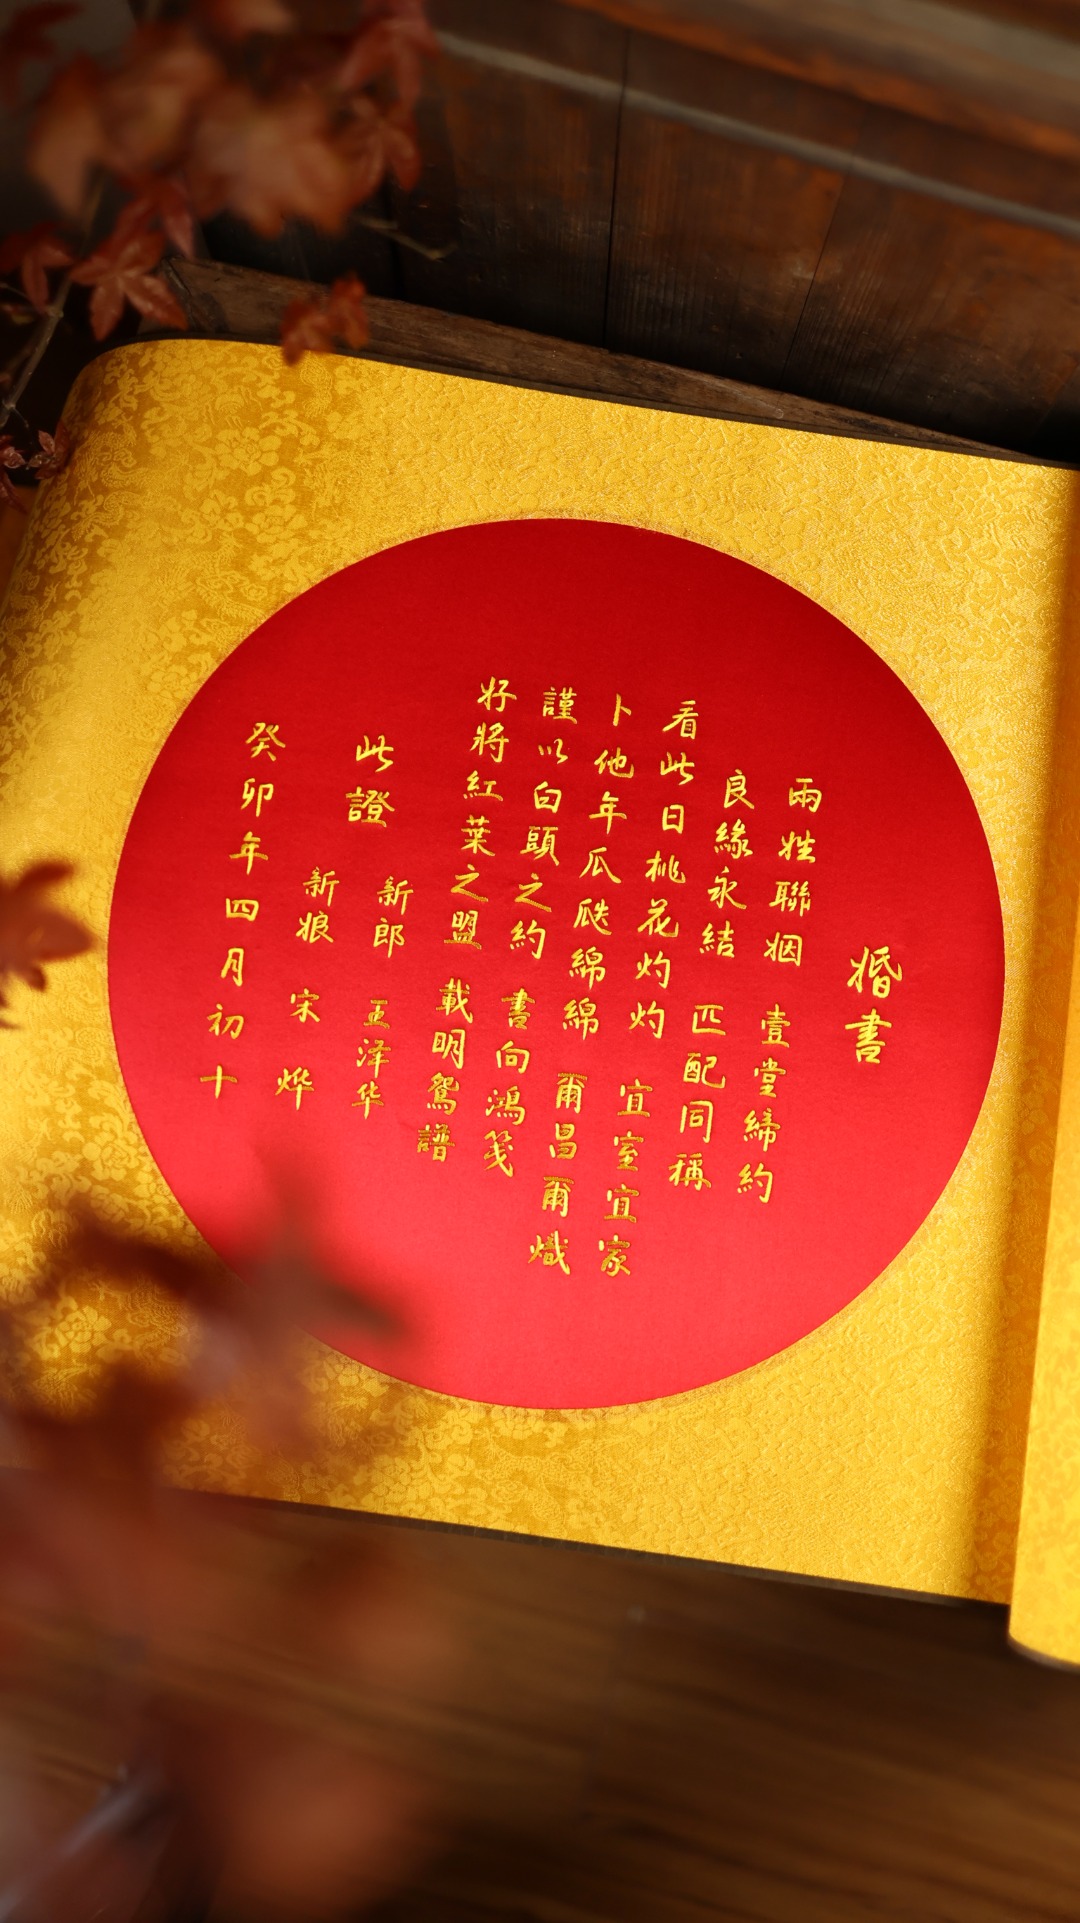 婚書
兩姓聯姻 壹堂締約
良緣永結 匹配同稱
看此日桃花灼灼 宜室宜家
卜他年瓜瓞綿綿 爾昌爾熾
謹以白頭之約 書向鴻箋
好將紅葉之盟 載明鴛譜
此證
新郎 王泽华
新娘 宋烨
癸卯年四月初十